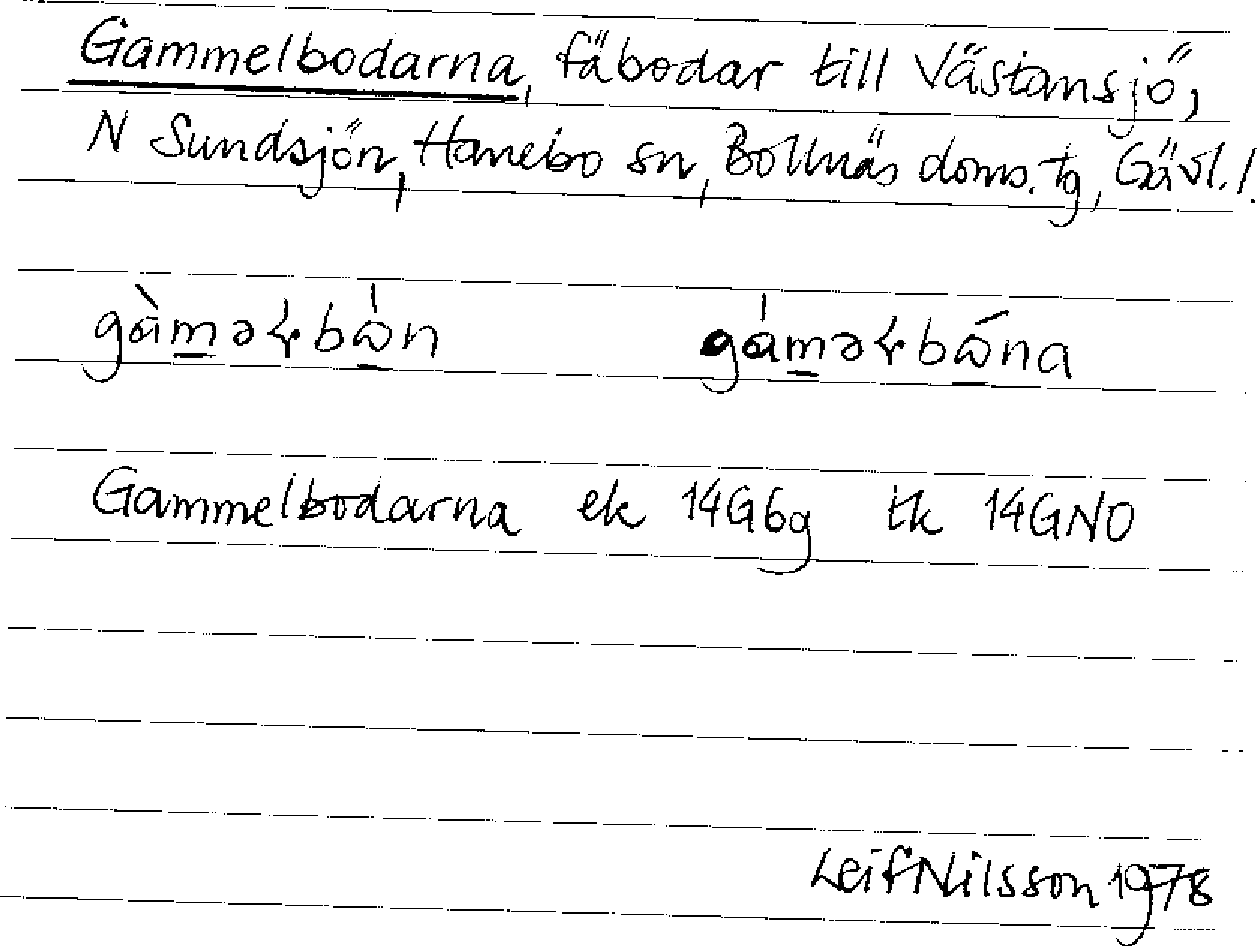 Gammelbodarna, fäbodar till Västansjö,
N Sundsjön, Hanebo sn, Bollnäs doms. tg, Gävl. l.
Gammelbodarna ek 14G6g tk 14GNO
Leif Nilsson 1978